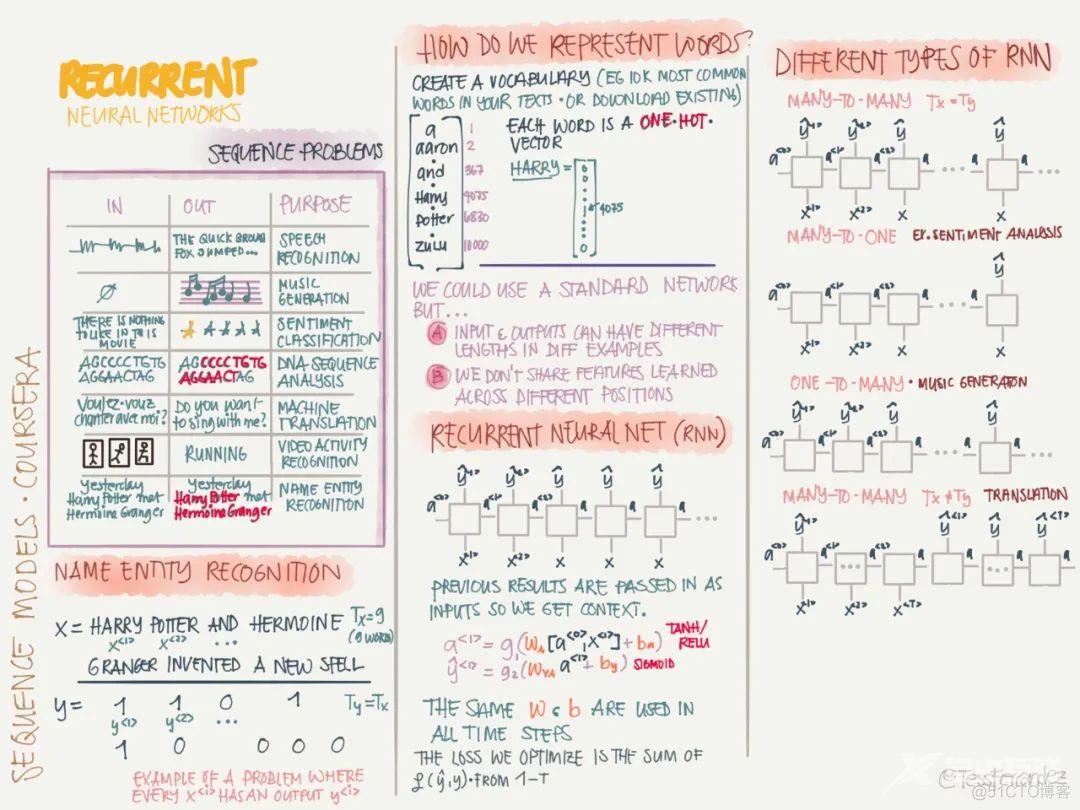 RECURRENT
NEURAL NETWORKS
SEQUENCE MODELS · COURSERA
SEQUENCE PROBLEMS
IN OUT PURPOSE
THE QUICK BROWN FOX JUMPED... SPEECH RECOGNITION
∅ MUSIC GENERATION
THERE IS NOTHING TO LIKE IN THIS MOVIE SENTIMENT CLASSIFICATION
AGCCCCTGTG AGGAACTAG AGCCCCTGTG AGGAACTAG DNA SEQUENCE ANALYSIS
Voulez-vouz chanter avec moi? Do you want to sing with me? MACHINE TRANSLATION
RUNNING VIDEO ACTIVITY RECOGNITION
Yesterday Harry Potter met Hermoine Granger Yesterday Harry Potter met Hermoine Granger NAME ENTITY RECOGNITION
NAME ENTITY RECOGNITION
X = HARRY POTTER AND HERMOINE Tx=9 (9 WORDS)
x<1> x<2> ...
GRANGER INVENTED A NEW SPELL
y = 1 1 0 1 Ty=Tx
y<1> y<2> ...
1 0 0 0 0
EXAMPLE OF A PROBLEM WHERE
EVERY X<i> HAS AN OUTPUT y<i>
HOW DO WE REPRESENT WORDS?
CREATE A VOCABULARY (EG 10K MOST COMMON
WORDS IN YOUR TEXTS · OR DOWNLOAD EXISTING)
a 1
aaron 2
and 367
Harry 4075
Potter 6830
zulu 10000
EACH WORD IS A ONE·HOT·
VECTOR
HARRY = 0 0 1 0
4075
WE COULD USE A STANDARD NETWORK
BUT...
A INPUT & OUTPUTS CAN HAVE DIFFERENT
LENGTHS IN DIFF EXAMPLES
B WE DON'T SHARE FEATURES LEARNED
ACROSS DIFFERENT POSITIONS
RECURRENT NEURAL NET (RNN)
ŷ<1> ŷ<2> ŷ ŷ ŷ
a<0> a<1> a a a a ...
x<1> x<2> x x x
PREVIOUS RESULTS ARE PASSED IN AS
INPUTS SO WE GET CONTEXT.
a<1> = g1(WA[a<0>, x<1>] + bA) TANH/RELU
ŷ<1> = g2(WYA a<1> + by) SIGMOID
THE SAME W & b ARE USED IN
ALL TIME STEPS
THE LOSS WE OPTIMIZE IS THE SUM OF
ℒ(ŷ,y)·FROM 1-T
DIFFERENT TYPES OF RNN
MANY-TO-MANY Tx=Ty
ŷ<1> ŷ<2> ŷ ŷ
a<0> a<1> a<2> a ... a ...
x<1> x<2> x x
MANY-TO-ONE EX.SENTIMENT ANALYSIS
ŷ
a<0> a a a ... a
x<1> x<2> x x
ONE-TO-MANY · MUSIC GENERATION
ŷ<1> ŷ<2> ŷ ŷ
a<0> a<1> a a ... a
MANY-TO-MANY Tx≠Ty TRANSLATION
ŷ<1> ŷ<1> ŷ ŷ<T>
a<0> a<1> ... a a a ... a a
x<1> x<2> x<T>
@51CTO博客